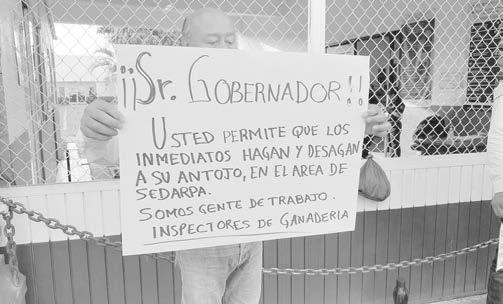 ¡¡Sr. GOBERNADOR!!
USTED PERMITE QUE LOS
INMEDIATOS HAGAN Y DESAGAN
A SU ANTOJO, EN EL AREA DE
SEDARPA.
SOMOS GENTE DE TRABAJO.
INSPECTORES DE GANADERIA